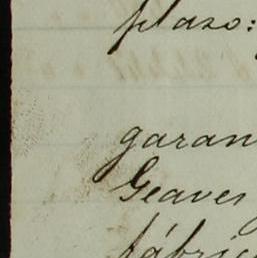 plaso:
garan
Geaves
fábric